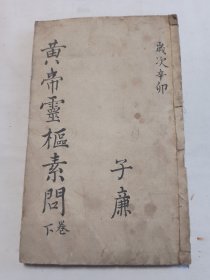 歲次辛卯
子廉
黃帝靈樞素問
下卷